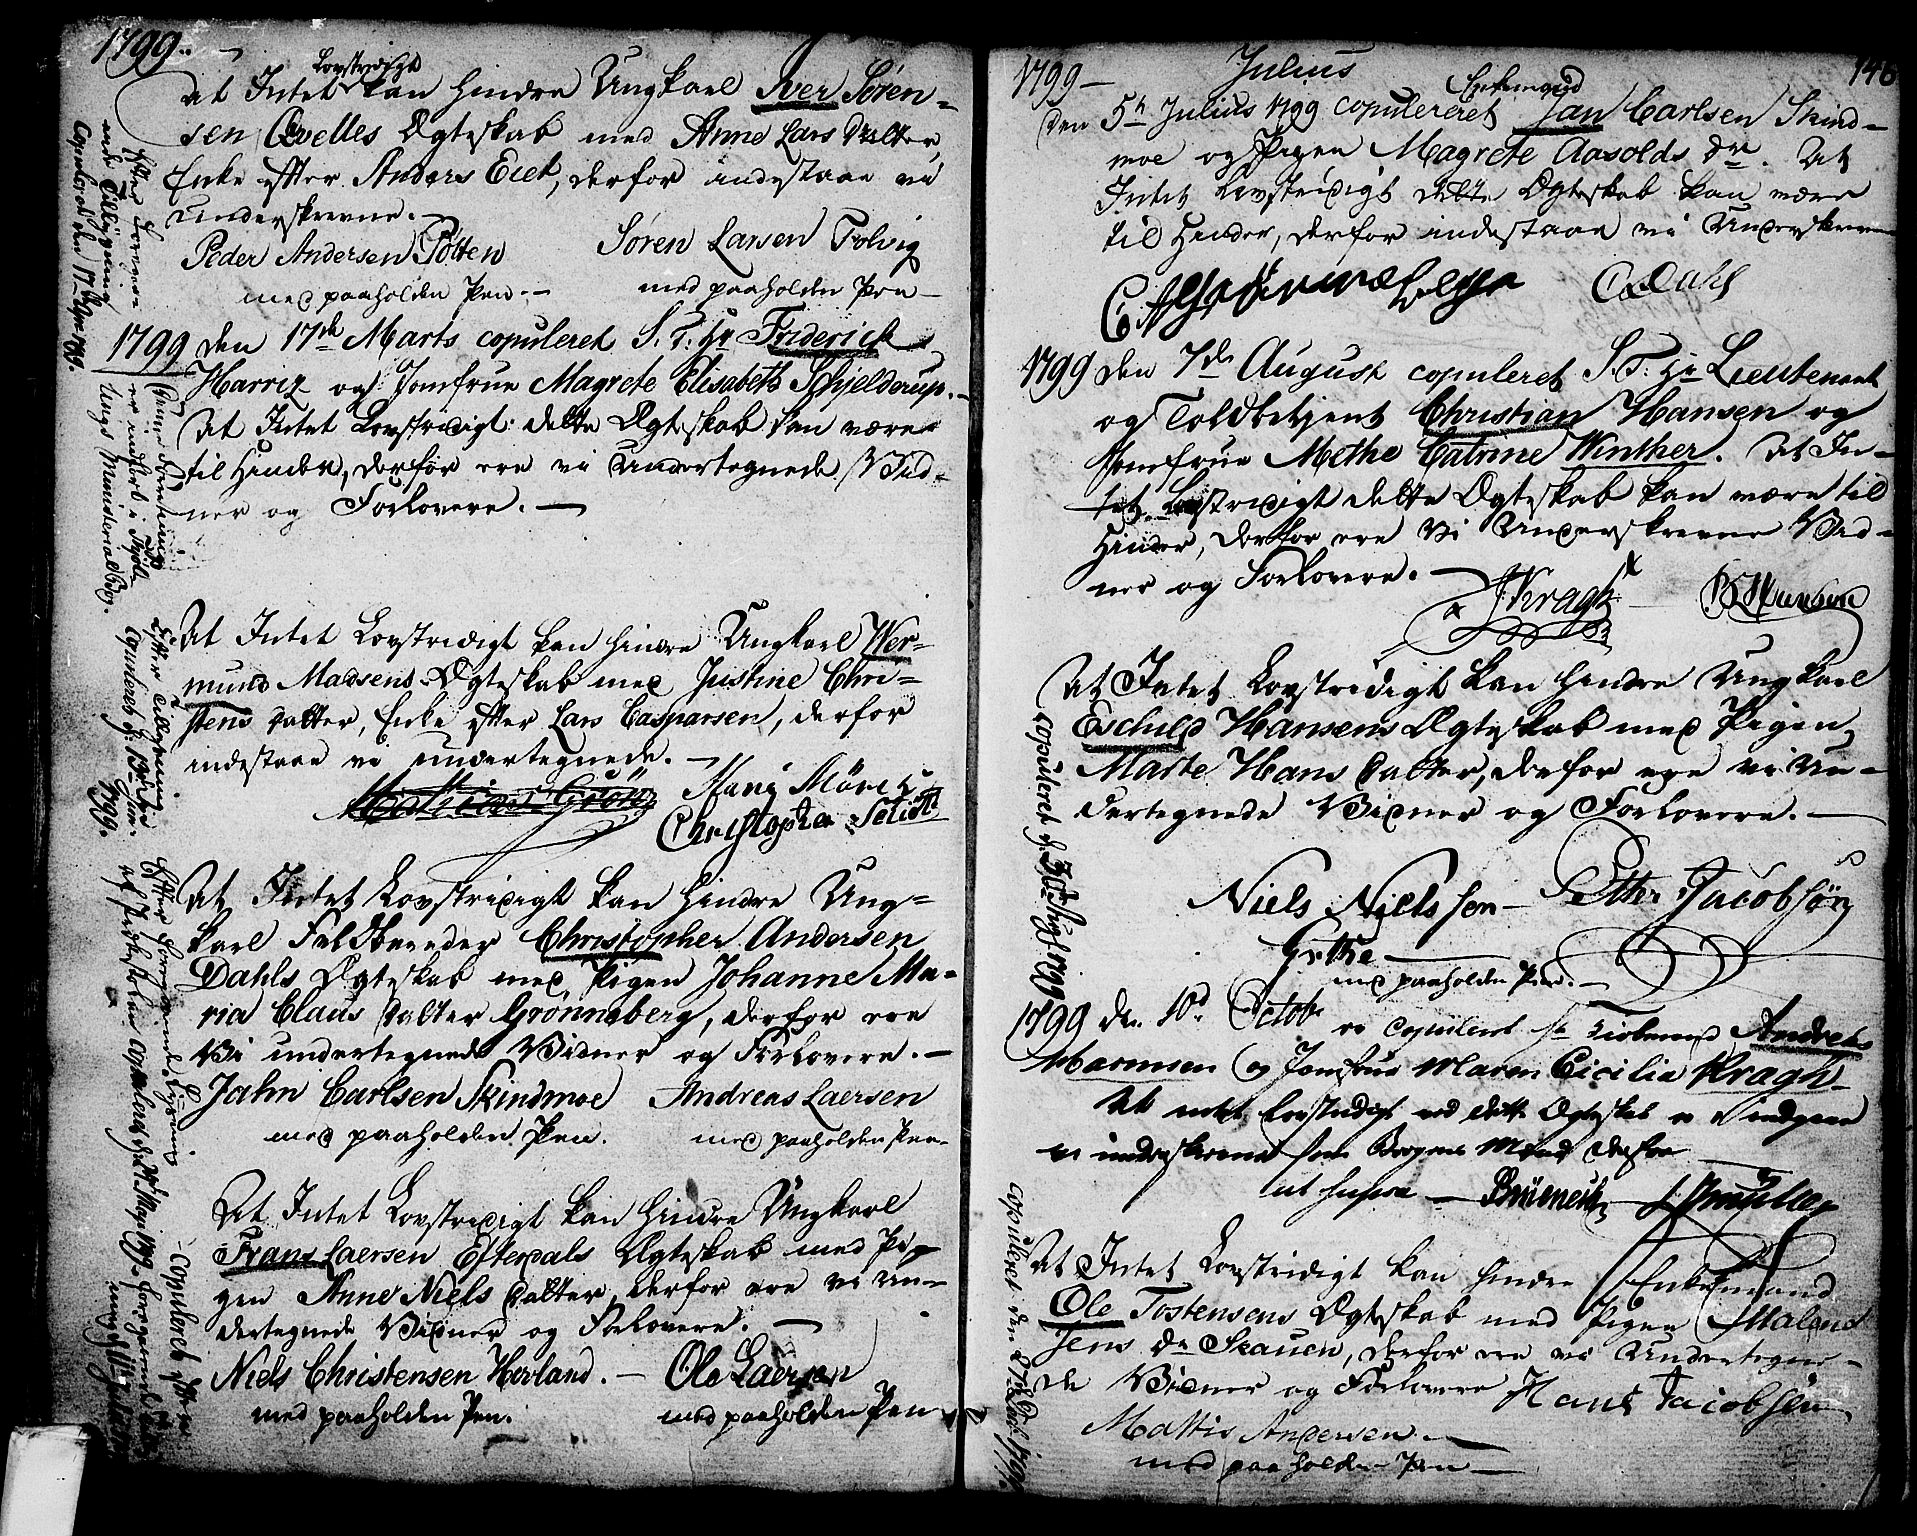 1799.
At Intet Lovstridigt kan hindre Ungkarl Iver Søren-
sen Qvelles Ægteskab med Anne Lars Datter
Enke efter Anders Eick, derfor indestaae vi
underskrevne.
Peder Andersen Totten Søren Larsen Tolvig
med paaholden Pen.- med paaholden Pen-
1799 den 17de Marts copuleret S. T. Hr Friderich
Harriz og Jomfrue Magrete Elisabeth Schjelderup.
At Intet Lovstridigt dette Ægteskab kan være
til Hinder, derfor ere vi Undertegnede Vid-
ner og Forlovere.
At Intet Lovstridigt kan hindre Ungkarl Wer-
mund Madsens Ægteskab med Justine Chri-
stens Datter, Enke efter Lars Casparsen, derfor
indestaae vi undertegnede.
Christopher
At Intet Lovstridigt kan hindre Ung-
karl Feldbereeder Christopher Andersen
Dahls Ægteskab med Pigen Johanne Ma-
ria Claus Datter Grønneberg, derfor ere
Vi undertegnede Vidner og Forlovere.
Jahn Carlsen Skindmoe Andreas Laersen
med paaholden Pen. med paaholden Pen.
At Intet Lovstridigt kan hindre Ungkarl
Frans Laersen Efterdals Ægteskab med Pi-
gen Anne Niels Datter, derfor ere vi un-
dertegnede Vidner og Forlovere.
Niels Christensen Hovland. Ole Laersen
med paaholden Pen. med paaholden Pen
Efter Forrevi-
sende Tillysning
Copuleret den 17de 1799.
Denne Forretning
er indført i
Ungs Ministerial Bog.
Efter Tillysning
Copuleret d: 13de
1799.
Efter Foregaaende Lysning
Copuleret efter
146
1799 Julius
Enkemand
den 5te Julius 1799 copuleret Jan Carlsen Skind-
moe og Pigen Magrete Aasolds Dr. At
Intet Lovstridigt dette Ægteskab kan være
til Hinder, derfor indestaae vi Underskrevne
C Dahl
1799 den 7de August copuleret S. T. Hr Lieutenant
og Toldbetjent Christian Hansen og
Jomfrue Methe Catrine Winther. At In-
tet Lovstridigt dette Ægteskab kan være til
Hinder, derfor ere Vi Underskrevne Vid-
ner og Forlovere.
Kragh
At Intet Lovstridigt kan hindre Ungkarl
Eschild Hansens Ægteskab med Pigen
Marte Hans Datter, derfor ere vi Un-
dertegnede Vidner og Forlovere.
Niels Nielssen Petter Jacobsøn
Grthe
med paaholden Pen.
1799 den 10d Octobr er Copuleret Hr Andreas
Marmsen og Jomfrue Maren Cicilia Kragh
At intet Lovstridigt ved dette Ægteskab er
vi underskrevne som derfor
ut supra
At Intet Lovstridigt kan hindre Enkemand
Ole Tostensens Ægteskab med Pigen Malene
Jens Dr Skauen, derfor ere vi Undertegne-
de Vidner og Forlovere Hans Jacobsen
Mattis Andersen.
med paaholden Pen
copuleret d. 1799
copuleret den 1799.